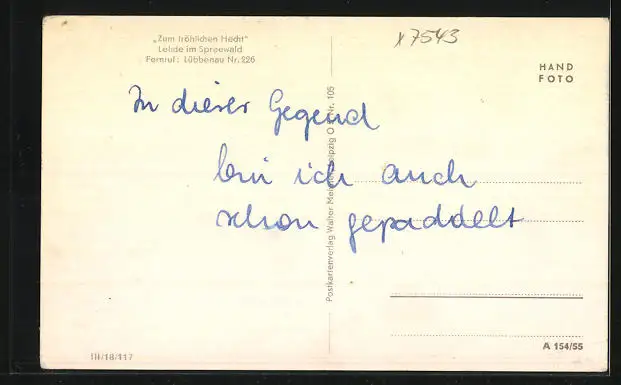 „Zum fröhlichen Hecht"
Lehde im Spreewald
Fernruf: Lübbenau Nr. 226
x 7543
HAND
FOTO
In dieser Gegend
bin ich auch
schon gepaddelt
Postkartenverlag Walter Leipzig O Nr. 105
III/18/117
A 154/55